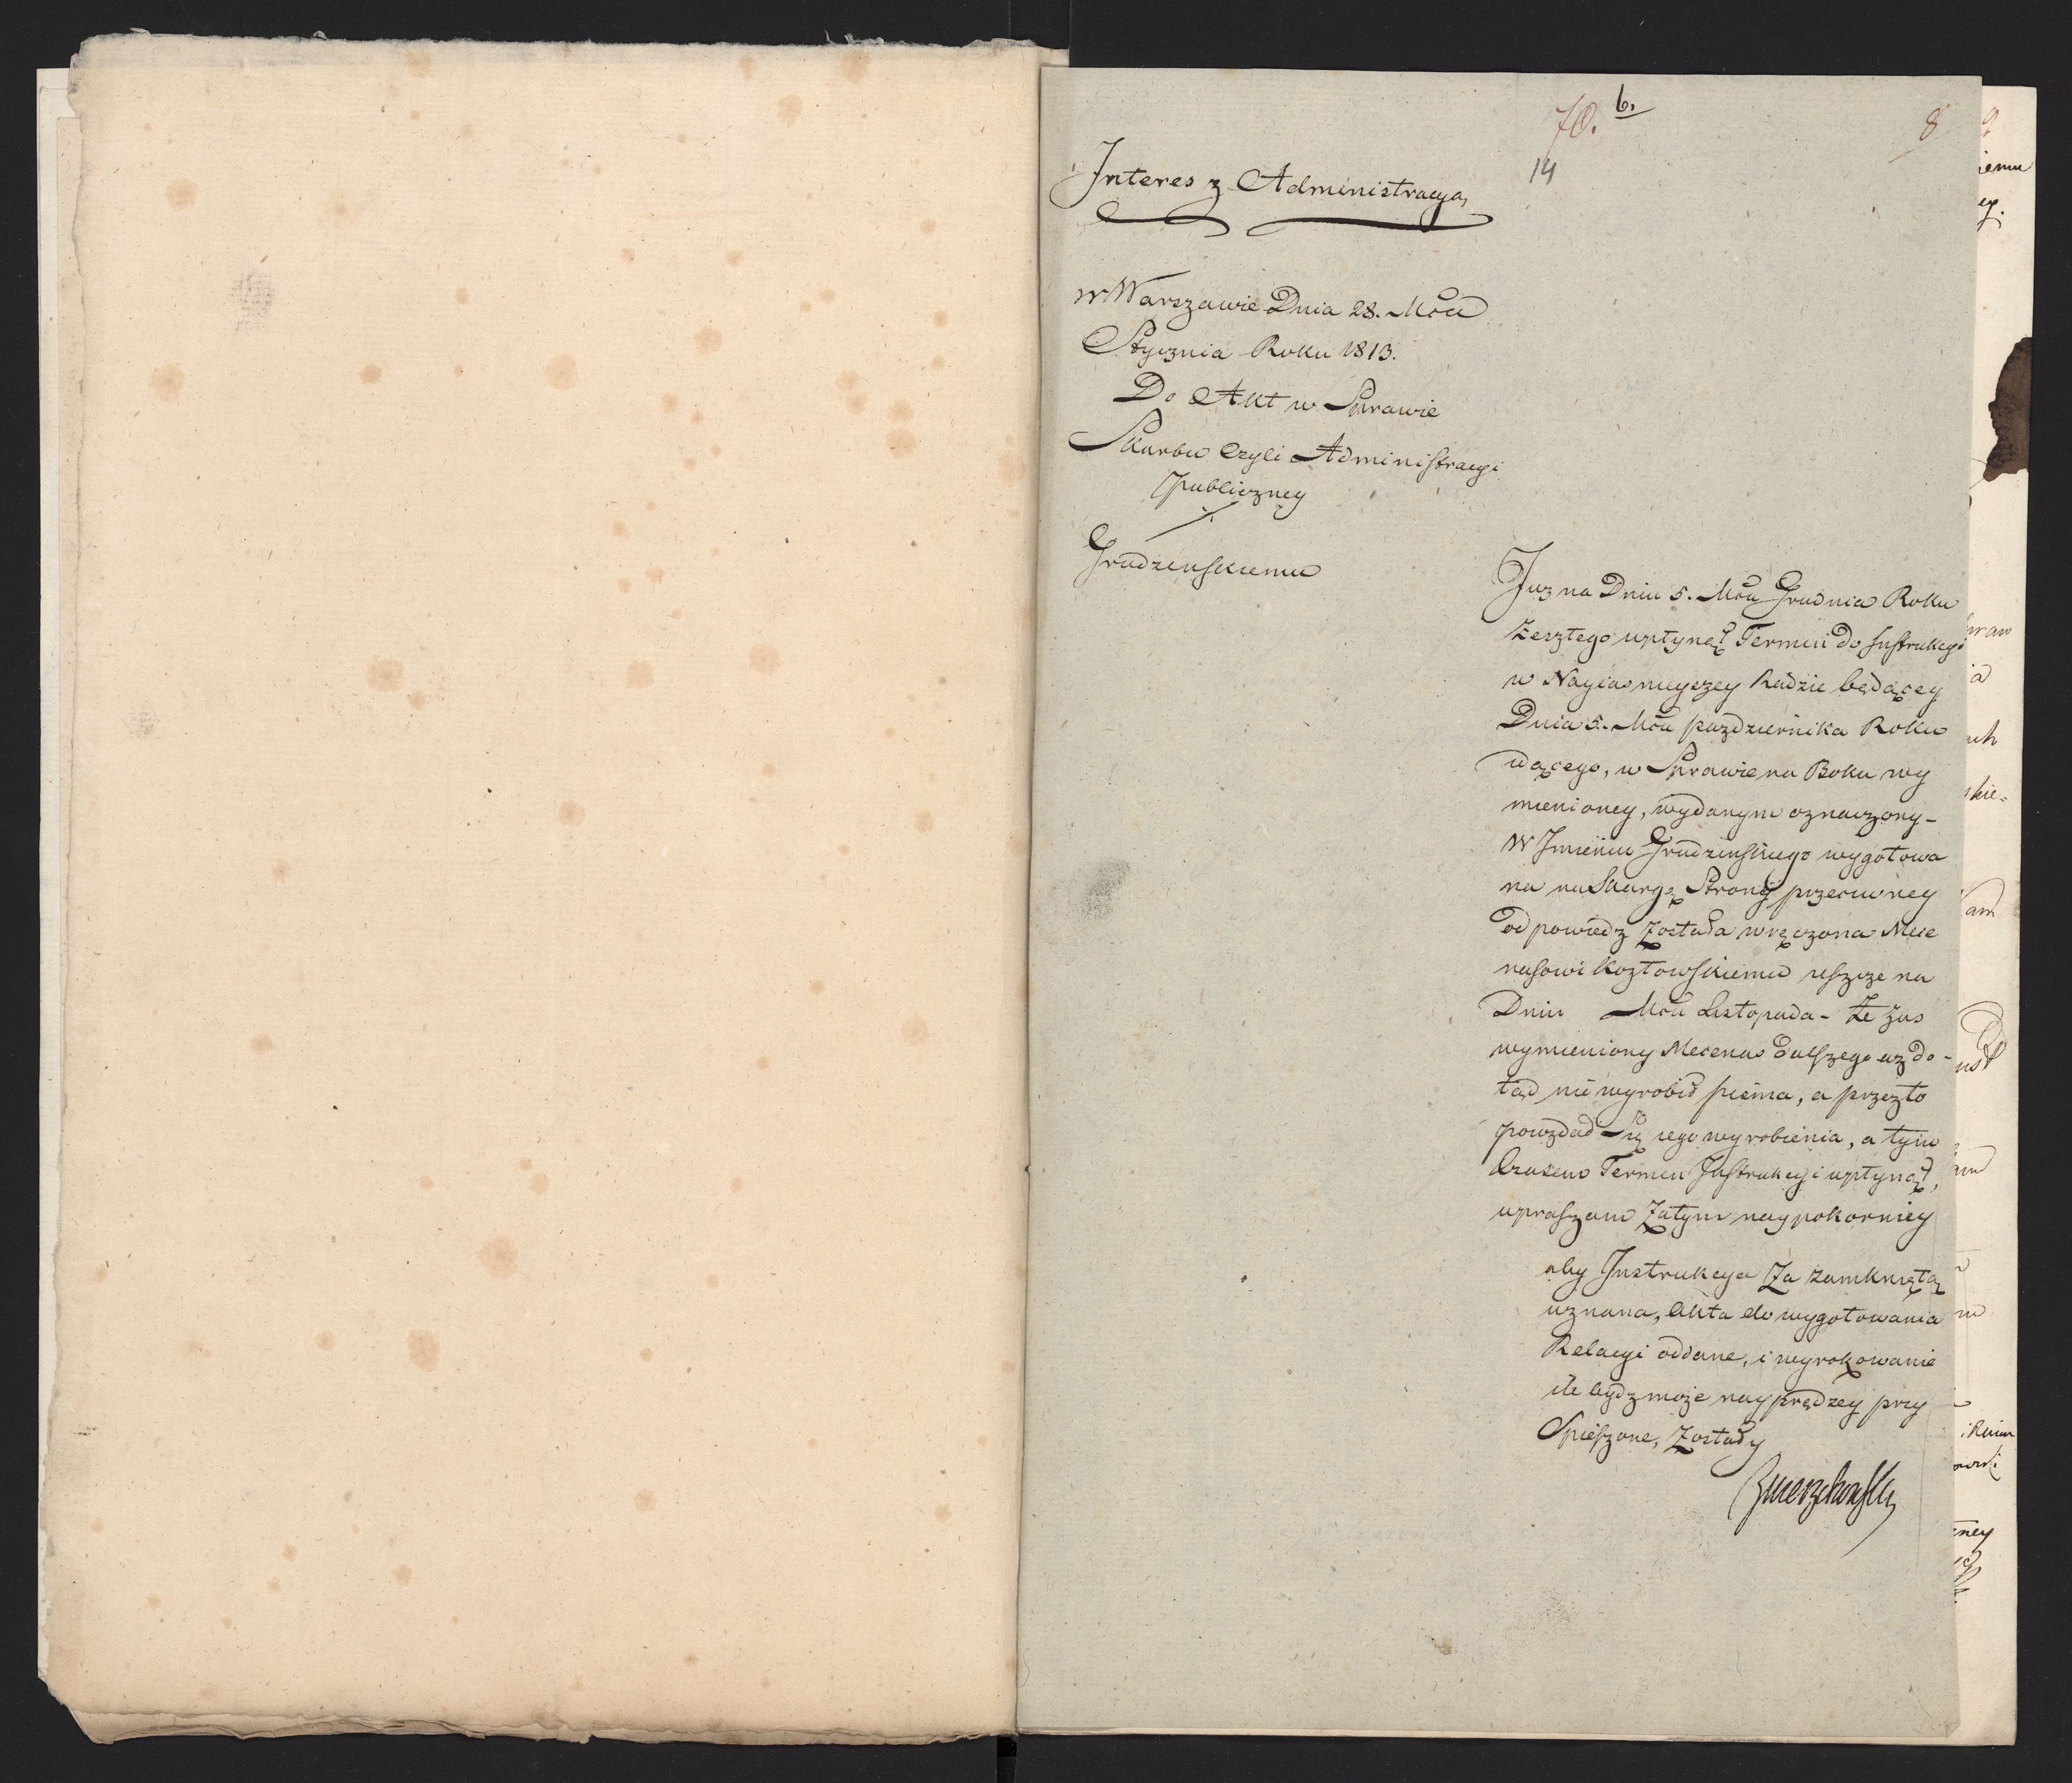 70. b.
8
14
Interes z Administracyą
w Warszawie Dnia 28. Mca
Stycznia Roku 1813.
Do Akt w Sprawie
Skarbu Czyli Administracyi
publiczney
./.
Grudzinskiemu
Juz na Dniu 5. Mca Grudnia Roku
Zeszłego upłynął Termin do Instrukcyi
w Nayiasnieyszey Radzie będącey
Dnia 5. Mca pazdziernika Roku
idącego, w Sprawie na Boku wy
mienioney, wydanym oznaczony_
W Imieniu Grudzinskiego wygotowa
na na Skargę Strony przeciwney
odpowiedz Została wręczona Mece
nasowi Kozłowskiemu ieszcze na
Dniu Mca Listopada - Ze zas
wymieniony Mecenas dalszego az do-
tąd nie wyrobił pisma, a przezto
pozdał Się iego wyrobienia, a tym
Czasem Termin Instrukcyi upłynął,
upraszam Zatym naypokorniey
aby Instrukcya Za zamkniętą
uznana, Akta do wygotowania
Relacyi oddane, i wyrokowanie
ile bydz może nayprędzey przy
Spieszone, Zostały